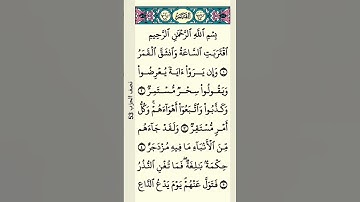 بِسْمِ ٱللَّهِ ٱلرَّحْمَٰنِ ٱلرَّحِيمِ
ٱقْتَرَبَتِ ٱلسَّاعَةُ وَٱنشَقَّ ٱلْقَمَرُ
۝١ وَإِن يَرَوْا۟ ءَايَةً يُعْرِضُوا۟
وَيَقُولُوا۟ سِحْرٌ مُّسْتَمِرٌّ ۝٢
وَكَذَّبُوا۟ وَٱتَّبَعُوٓا۟ أَهْوَآءَهُمْ وَكُلُّ
أَمْرٍ مُّسْتَقِرٌّ ۝٣ وَلَقَدْ جَآءَهُم
مِّنَ ٱلْأَنۢبَآءِ مَا فِيهِ مُزْدَجَرٌ ۝٤
حِكْمَةٌۢ بَٰلِغَةٌ فَمَا تُغْنِ ٱلنُّذُرُ
۝٥ فَتَوَلَّ عَنْهُمْ يَوْمَ يَدْعُ ٱلدَّاعِ
نصف الحزب 53